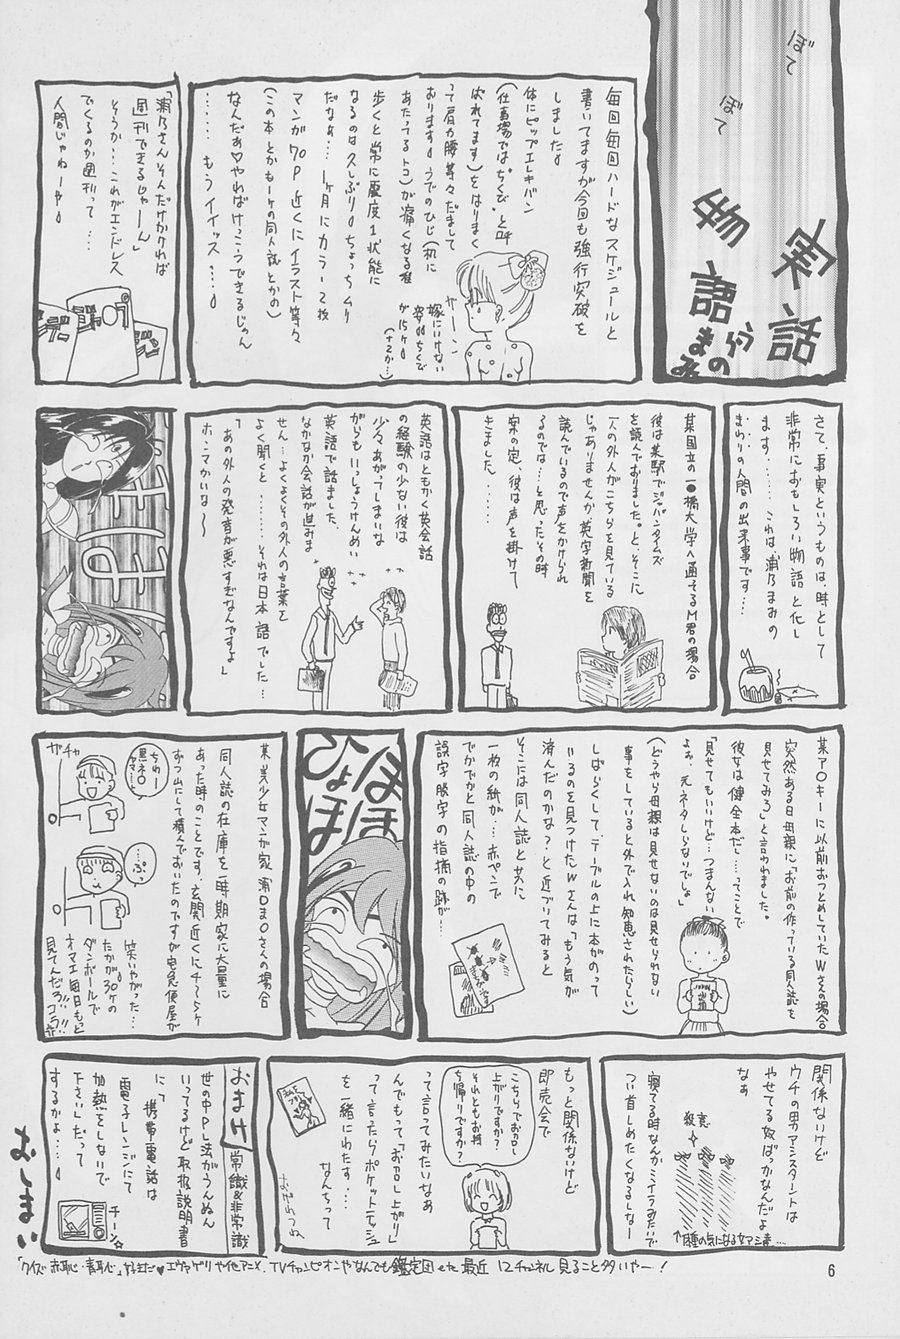 ぼて
ぼて
実話
物語
まみの
毎回毎回ハードなスケジュールと
書いてますが今回も強行突破を
しました。
体にピップエレキバン
(仕事場では“ちくび”と呼
ばれてます)をはりまく
って肩力腰等々だまして
おります。うでのひじ(机に
あたってるトコ)が痛くなる程
歩くと常に震度1状態に
なるのは久しぶり。ちょっちムリ
だなぁ…。1ヶ月にカラー2枚
マンガ70P近くにイラスト等々
(この本とかもー1ヶの同人誌とかの)
なんだぁ♡やればけっこうできるじゃん
……もうイイッス…。
サーン
嫁にいけない
「浦乃さんそんだけかければ
週刊できるじゃーん」
そうか…これがエンドレス
でくるのか週刊って…
人間じゃねーや。
さて、事実というものは、時として
非常におもしろい物語と化し
ます……これは浦乃まみの
まわりの人間の出来事です…
某国立の一●橋大学へ通ってるM君の場合
彼は某駅でジャパンタイムズ
を読んでおりました。と、そこに
一人の外人がこちらを見ている
じゃありませんか英字新聞を
読んでいるので声をかけられ
るのでは…と思ったその時
案の定、彼は声を掛けて
きました……
英語はともかく英会話
の経験の少ない彼は
少々あがってしまいな
がらもいっしょうけんめい
英語で話ました、
なかなか会話が進みま
せん…よくよくその外人の言葉を
よく聞くと……それは日本語でした…
「あの外人の発音が悪すぎなんですよ」
ホンマかいな〜
某アOキーに以前おつとめしていたWさんの場合
突然ある日母親に「お前の作っている同人誌を
見せてみろ」と言われました。
彼女は健全本だし…ってことで
「見せてもいいけど…つまんない
よぉ、元ネタしらないでしょ」
(どうやら母親は見せないのは見せられない
事をしていると外で入れ知恵されたらしい)
しばらくして、テーブルの上に本がのって
いるのを見つけたWさんは「もう気が
済んだのかな?」と近づいてみると
そこには同人誌と共に
一枚の紙が…赤ペンで
でかでかと同人誌の中の
誤字脱字の指摘の跡が…
ほほ
ひょほ
某、美少女マンガ家浦Oま○さんの場合
同人誌の在庫を一時期家に大量に
あった時のことです。玄関近くに4〜5ヶ
ずつ山にして積んでおいたのですが宅急便屋が
ガチャ
ちわー
黒ネO
ヤマ…ト
…ぷ
笑いやがった…
たかが30ヶの
ダンボールで
オマエ毎日もっと
見てんだろ!!コラ!!
関係ないけど
ウチの男アシスタントは
やせてる奴ばっかなんだよ
なぁ
殺意
寝てる時なんかミイラみたいで
つい首しめたくなるしなー
もっと関係ないけど
即売会で
「こちらでお召し
上がりですか?
それともお持
ち帰りですか?」
って言ってみたいなぁ
んでもって「お召し上がり」
って言ったらポケットティッシュ
を一緒にわたす…
なんちって
おまけ
常識&非常識
世の中PL法がうんぬん
いってるけど取扱説明書
にて
携帯電話は
電子レンジにて
加熱をしないで
下さいしだって
するかよ…。
チーン☆
おしまい
「クイズ赤恥・青恥」
エヴァゲリや他アニメ、TVチャンピオンやなんでも鑑定団etc最近 12チャンネル見ること多いやー!
6